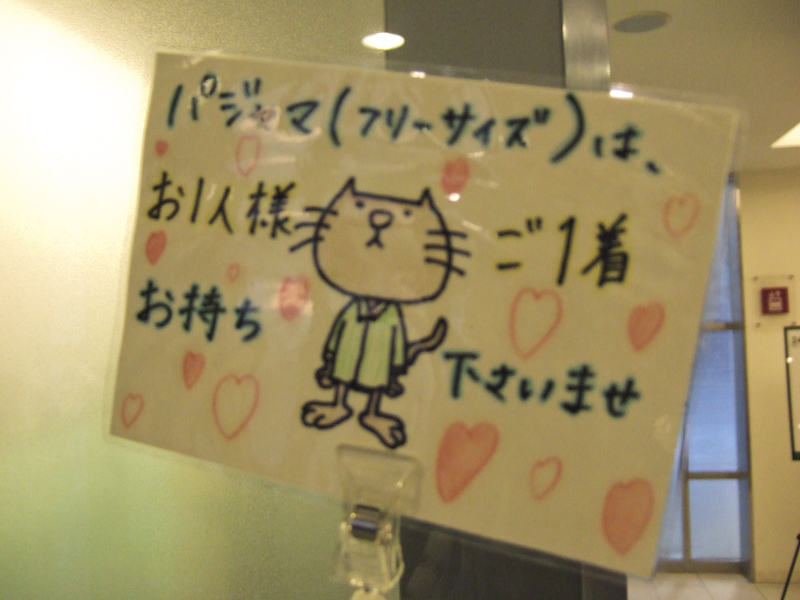 パジャマ(フリーサイズ)は、
お1人様 ご1着
お持ち 下さいませ